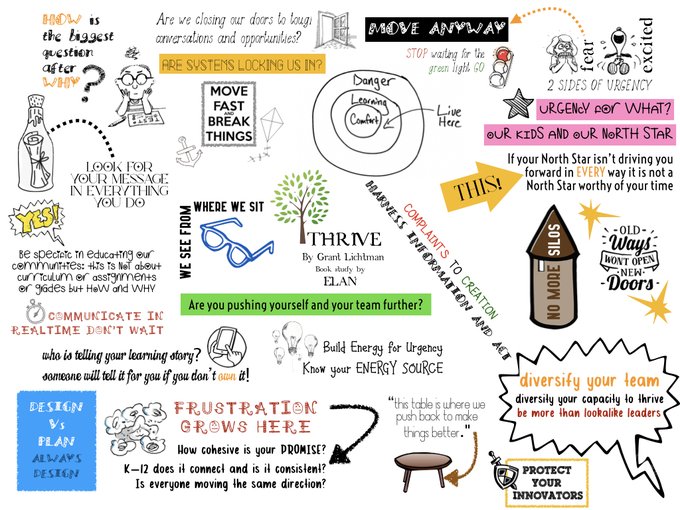 HOW is
the biggest
question
after
WHY
?
Are we closing our doors to tough
conversations and opportunities?
ARE SYSTEMS LOCKING US IN?
MOVE ANYWAY
STOP waiting for the
green light GO
fear
excited
2 SIDES OF URGENCY
MOVE
FAST
AND
BREAK
THINGS
Danger
Learning
Comfort
Live
Here
URGENCY FOR WHAT?
OUR KIDS AND OUR NORTH STAR
If your North Star isn't driving you
forward in EVERY way it is not a
North Star worthy of your time
THIS!
LOOK FOR
YOUR MESSAGE
IN EVERYTHING
YOU DO
YES!
Be specific in educating our
communities: this is not about
curriculum or assignments
or grades but HOW and WHY
WE SEE FROM
WHERE WE SIT
THRIVE
By Grant Lichtman
Book study by
ELAN
COMPLAINTS TO CREATION
HARNESS INFORMATION AND ACT
NO MORE SILOS
OLD
Ways
WON'T OPEN
NEW
Doors
Are you pushing yourself and your team further?
COMMUNICATE IN
REALTIME DON'T WAIT
who is telling your learning story?
someone will tell it for you if you don't own it!
Build Energy for Urgency
Know your ENERGY SOURCE
DESIGN
Vs
PLAN
ALWAYS
DESIGN
FRUSTRATION
GROWS HERE
How cohesive is your PROMISE?
K-12 does it connect and is it consistent?
Is everyone moving the same direction?
"this table is where we
push back to make
things better."
diversify your team
diversify your capacity to thrive
be more than lookalike leaders
PROTECT
YOUR
INNOVATORS